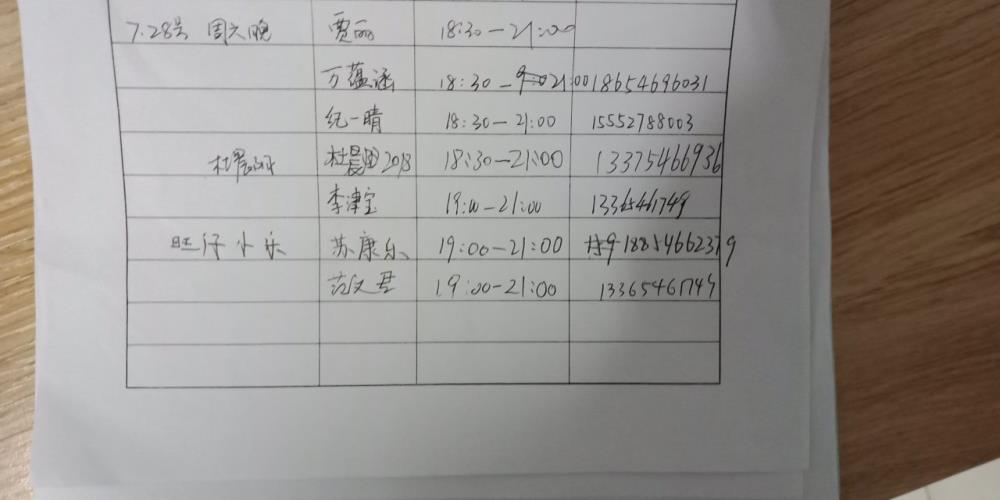 7.28号 周六晚 贾丽 18:30-21:00
万蕴涵 18:30-21:00 18654696031
纪一晴 18:30-21:00 15552788003
杜晨 2018 18:30-21:00 13375466936
李津宝 19:00-21:00 13365461749
旺仔小乐 苏康乐 19:00-21:00 18854662379
范文君 19:00-21:00 13365461749